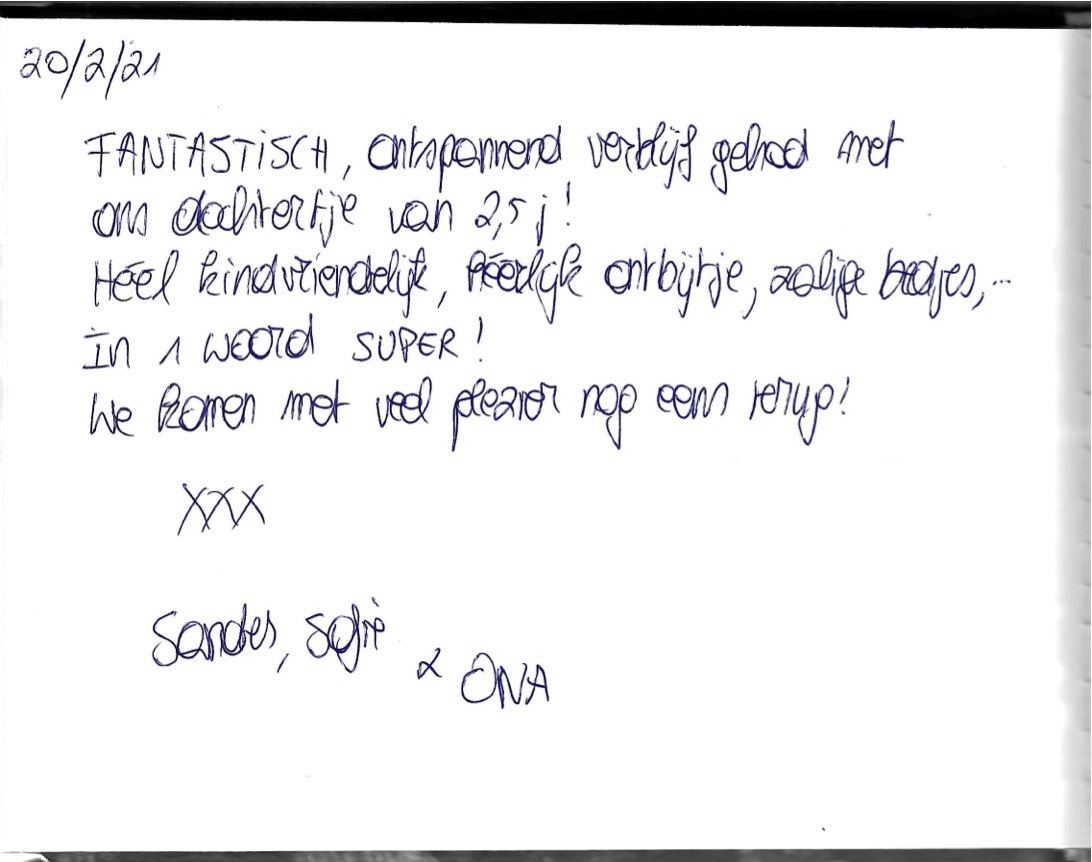 20/2/21
FANTASTiSCH, ontspannend verblijf gehad met
ons dochtertje van 2,5 j!
Héél kindvriendelijk, heerlijk ontbijtje, zalige bedjes,...
In 1 woord SUPER!
We komen met veel plezier nog eens terug!
XXX
Sander, Sofie
& ONA